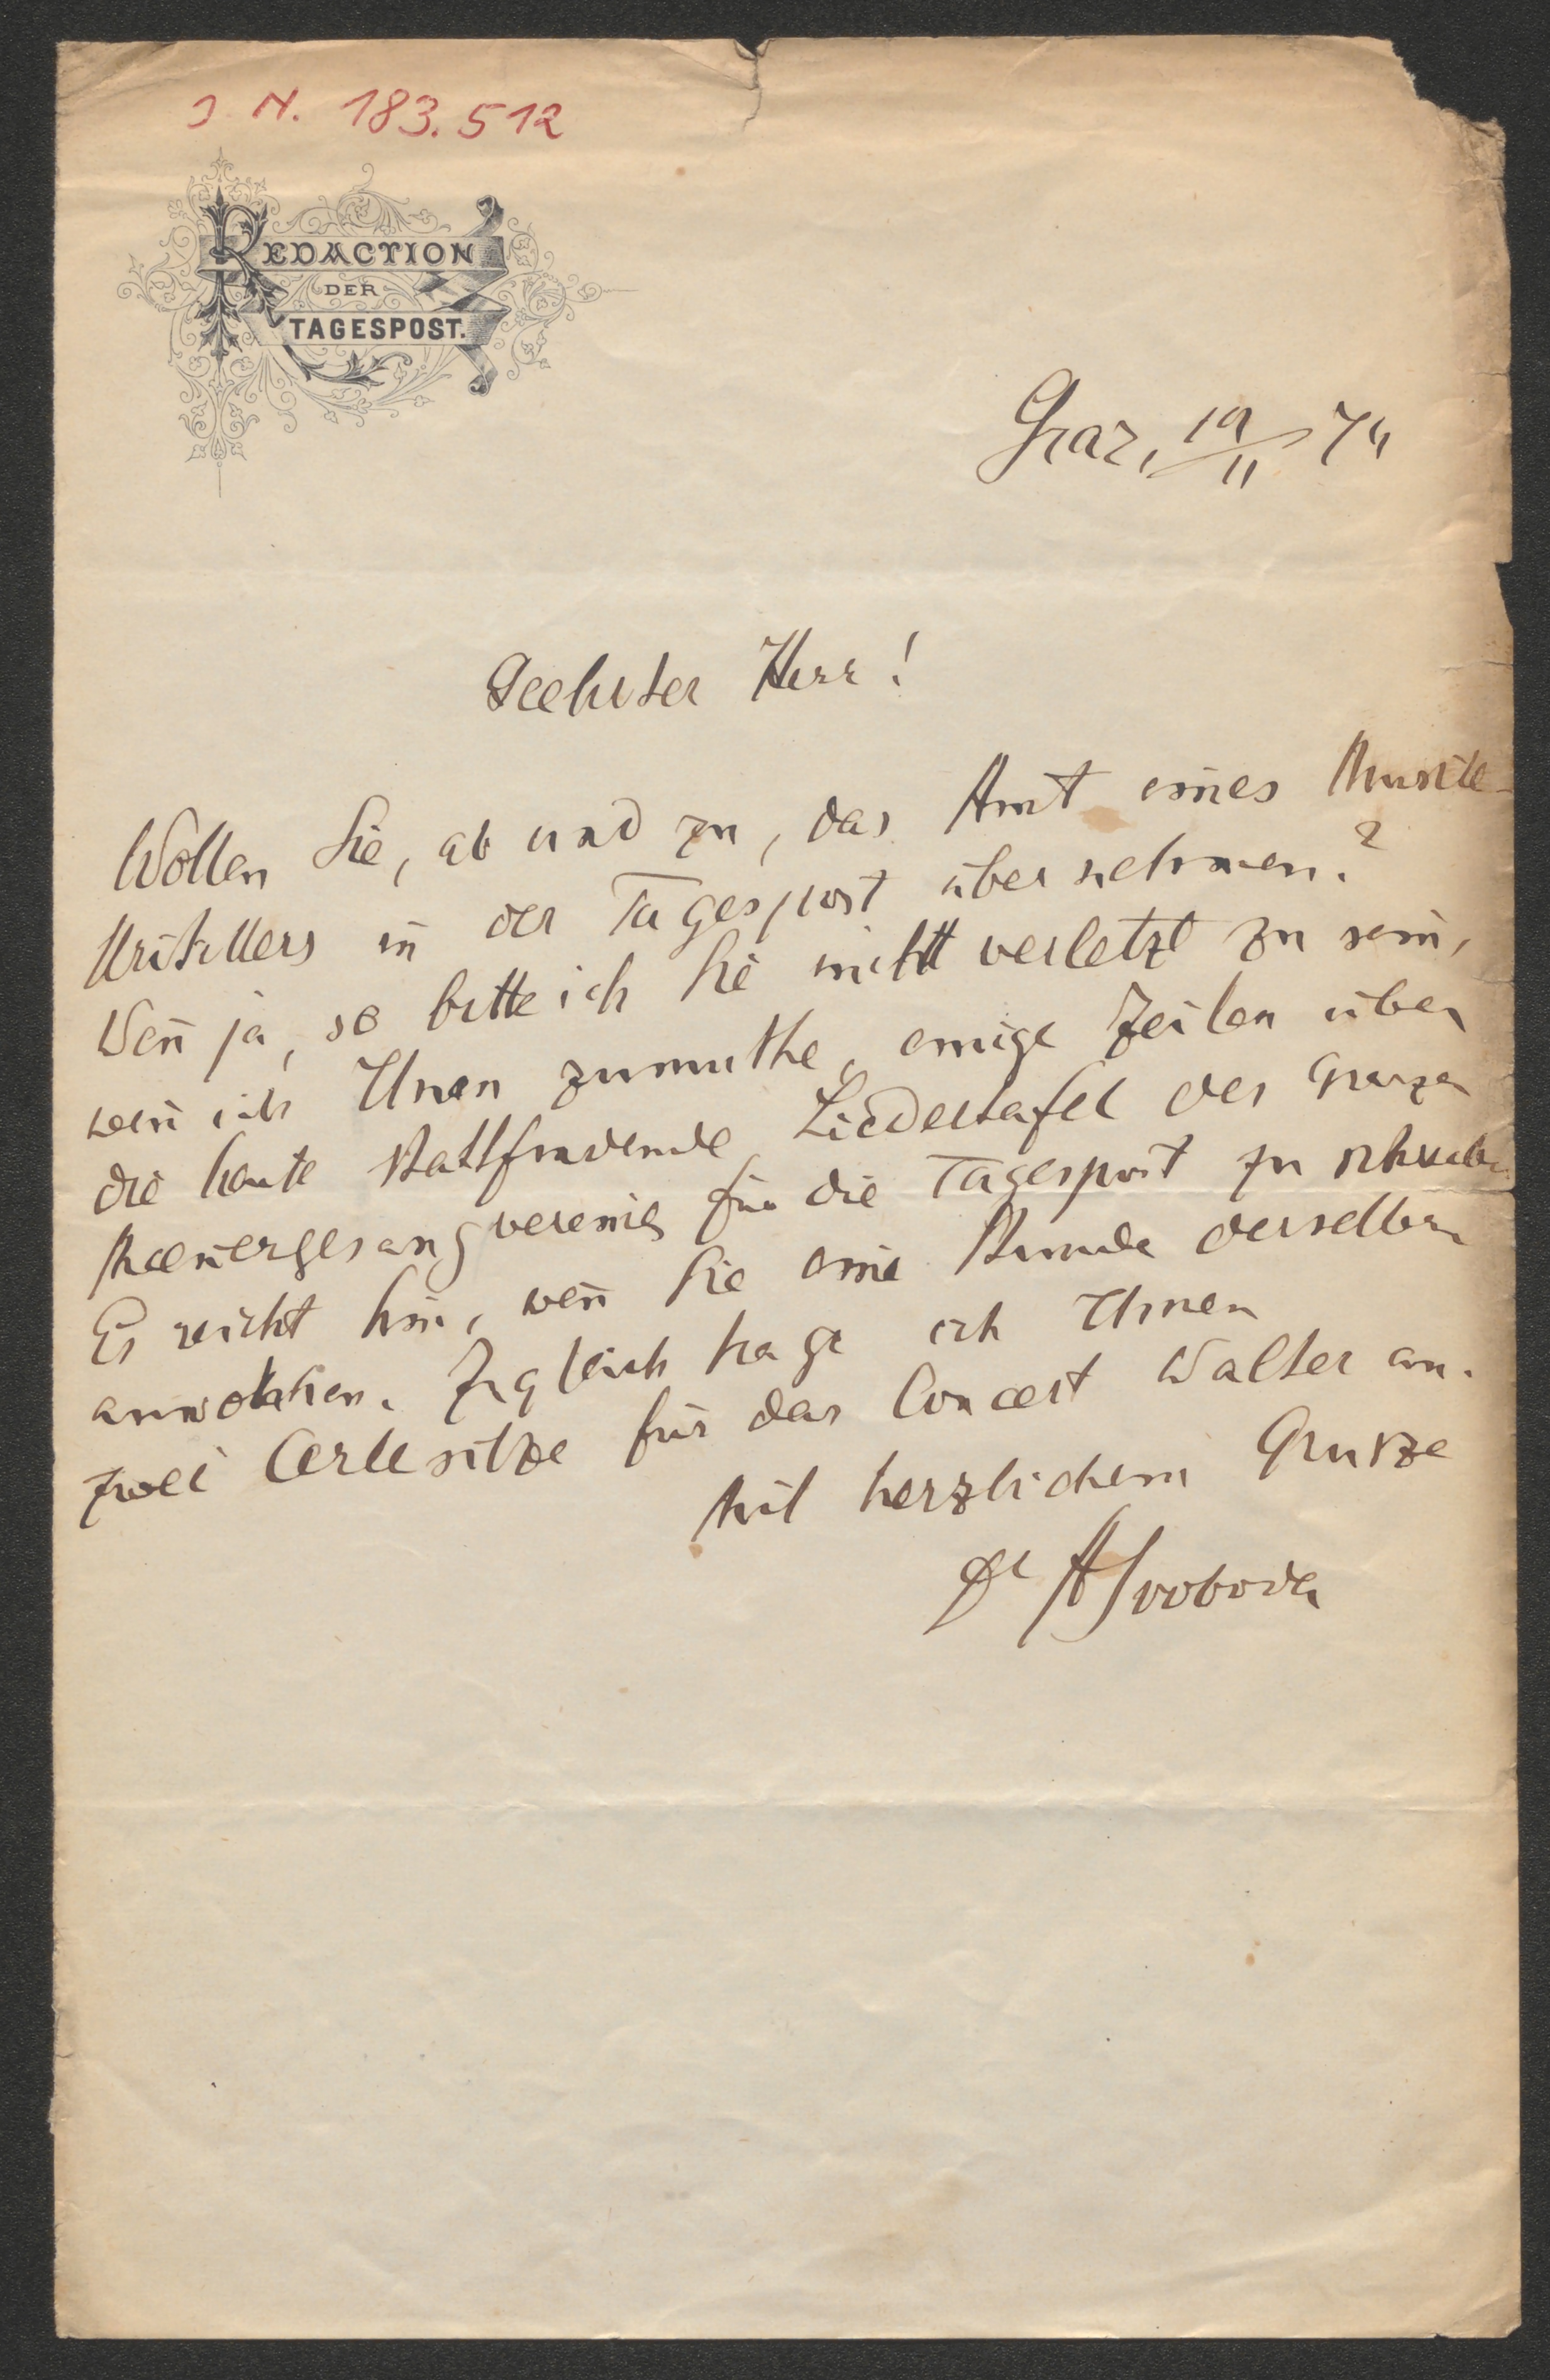 J. N. 183.512
REDACTION
DER
TAGESPOST.
Graz, 19/11 74
Geehrter Herr!
Wollen Sie, ab und zu, das Amt eines Musik-
Kritikers in der Tagespost übernehmen?
Wen̄ ja, so bitte ich Sie nicht verletzt zu sein,
wen̄ ich Ihnen zumuthe, einige Zeilen über
die heute stattfindende Liedertafel des Grazer
Mæn̄ergesangvereines für die Tagespost zu schreiben
Es reicht hin, wen̄ Sie eine Stunde derselben
anwohnen. Zugleich trage ich Ihnen
zwei Cerclesitze für das Concert Walter an.
Mit herzlichem Grusze
Dr ASvoboda